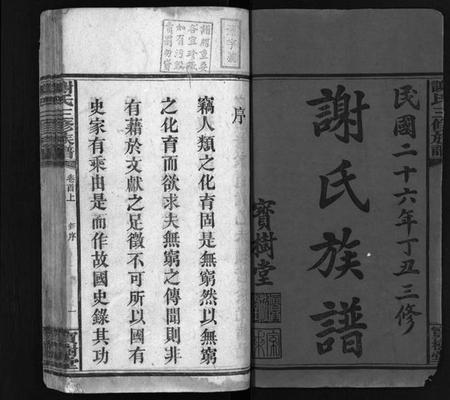 民國二十六年丁丑三修
謝氏族譜
寶樹堂
謝氏三修族譜
序
竊人類之化育固是無窮然以無窮
之化育而欲求夫無窮之傳聞則非
有藉於文獻之足徵不可所以國有
史家有乘由是而作故國史錄其功
謝氏三修族譜
卷首上
序
一
寶樹堂